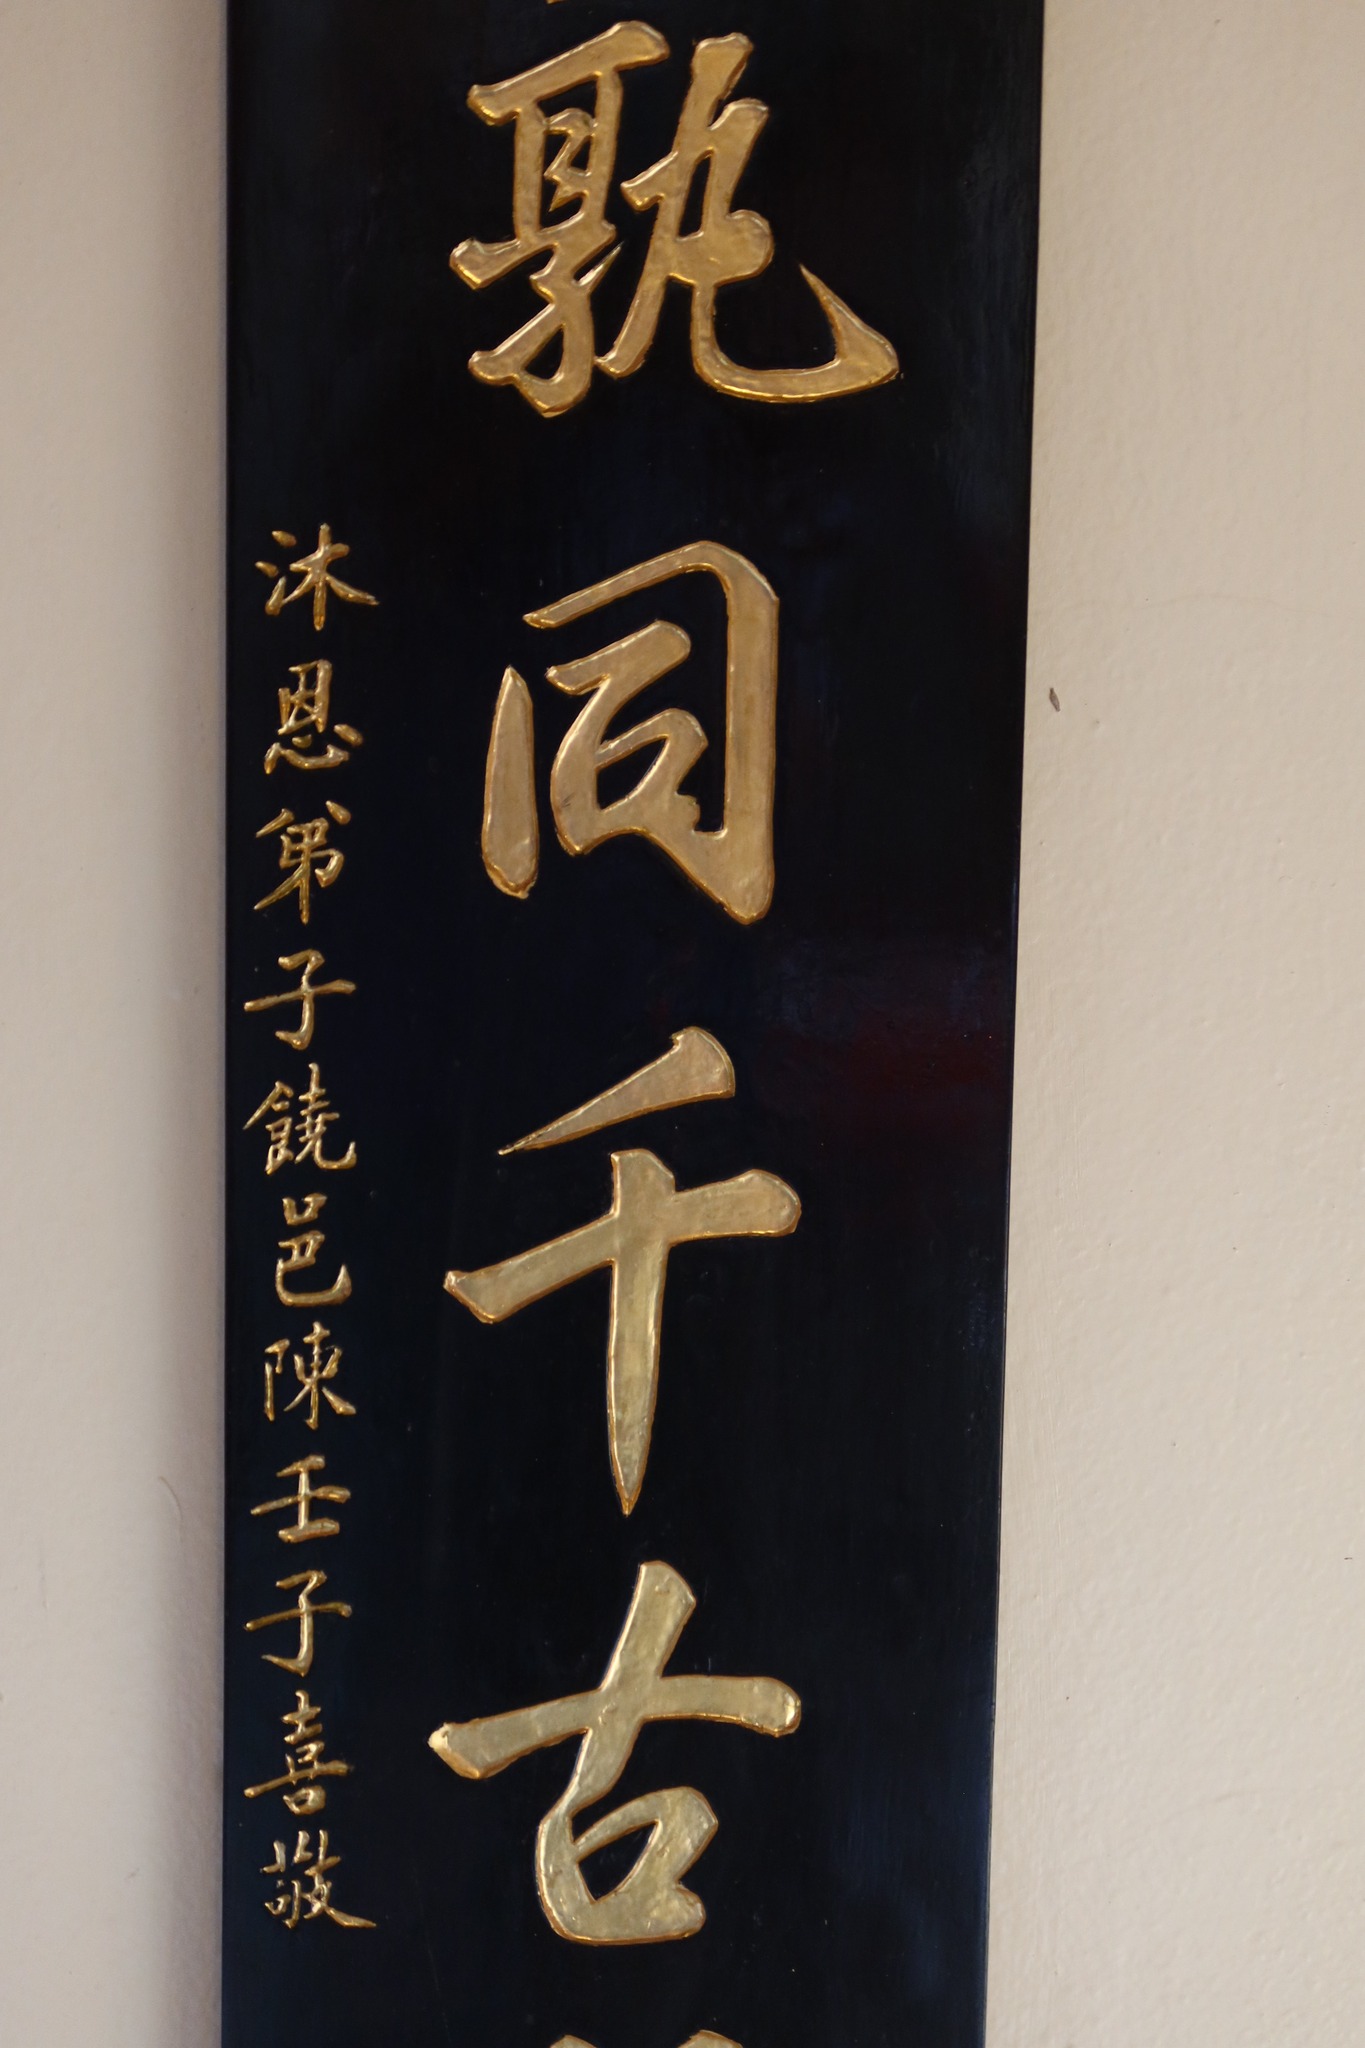 孰同千古
沐恩弟子饒邑陳壬子喜敬